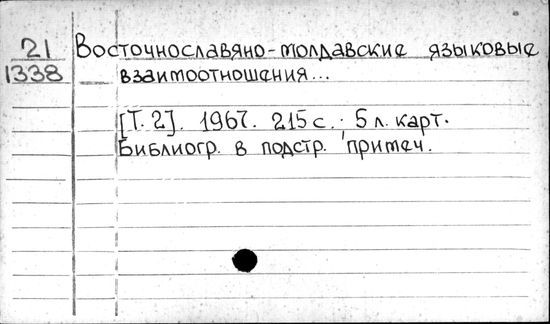 21
1338
Восточнославяно-молдавские языковые
взаимоотношения...
[Т. 2]. 1967. 215 с.; 5 л. карт.
Библиогр. в подстр. примеч.